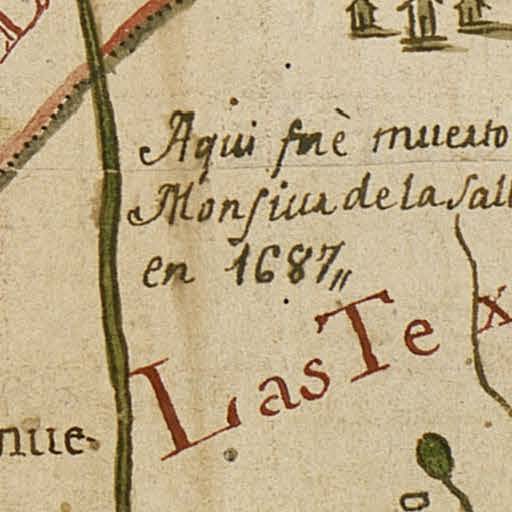 Aqui fuè muerto
Monsiur de la Sall
en 1687,,
Las Tex
nue